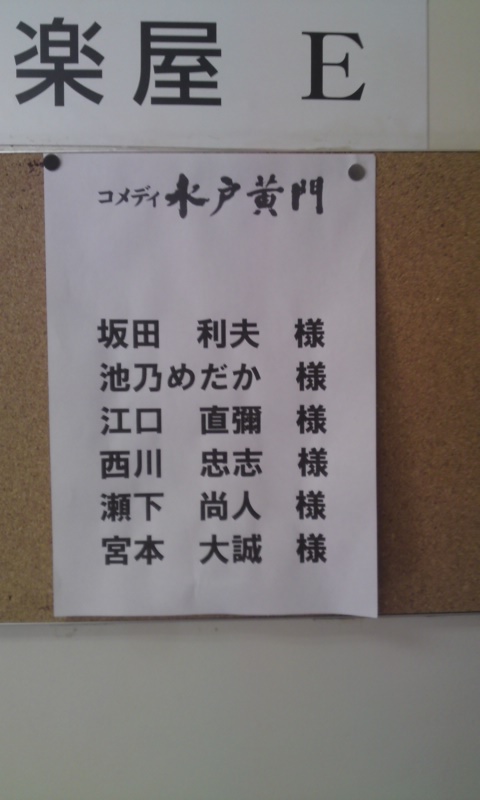 楽屋 E
コメディ 水戸黄門
坂田 利夫 様
池乃めだか 様
江口 直彌 様
西川 忠志 様
瀬下 尚人 様
宮本 大誠 様